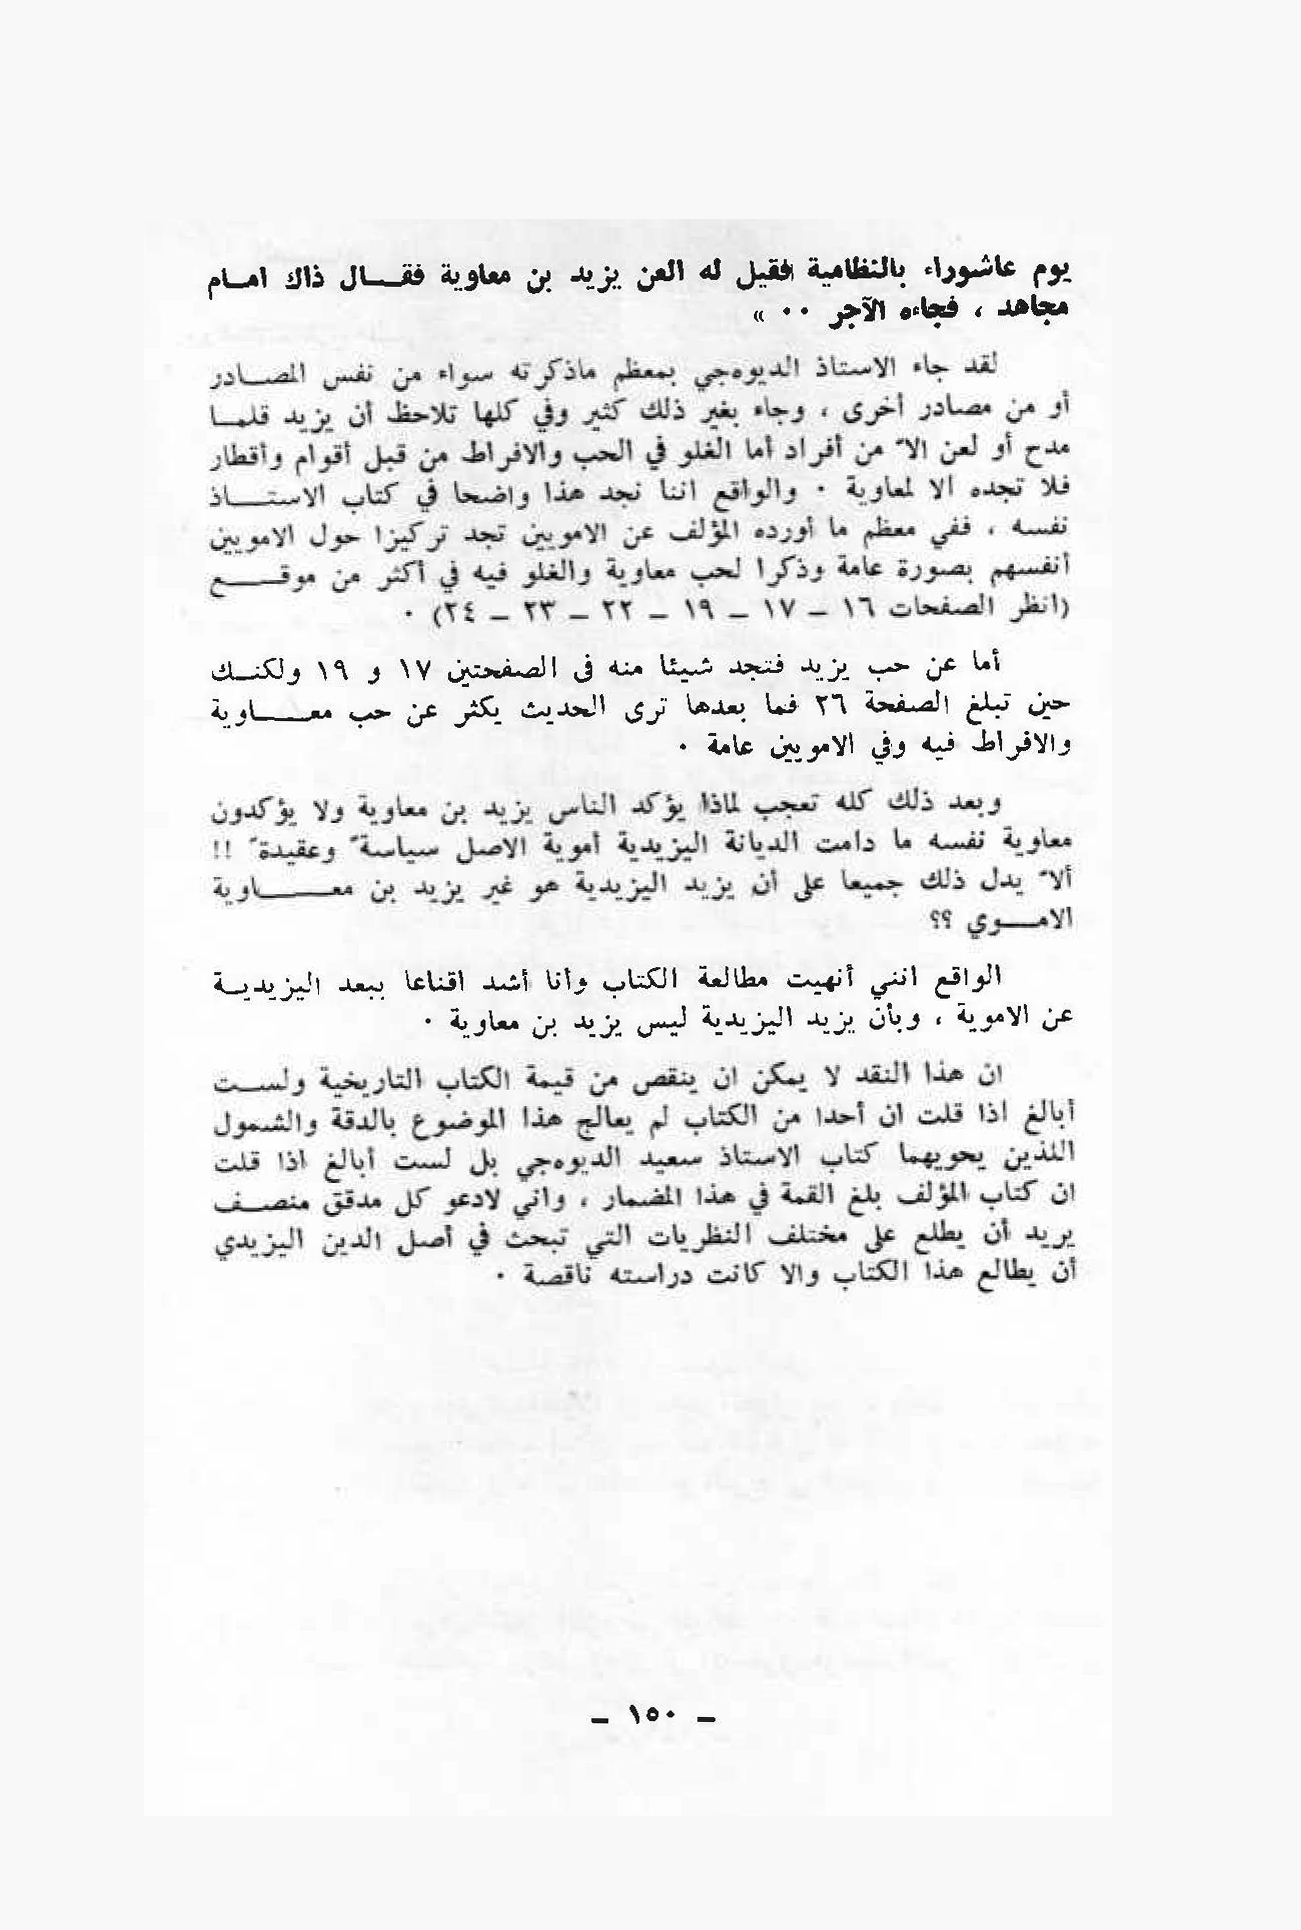 يوم عاشوراء بالنظامية فقيل له العن يزيد بن معاوية فقال ذاك امام
مجاهد ، فجاءه الآجر ٠٠ »
لقد جاء الاستاذ الديوه‌جي بمعظم ماذكرته سواء من نفس المصادر
أو من مصادر أخرى ، وجاء بغير ذلك كثير وفي كلها تلاحظ أن يزيد قلما
مدح أو لعن الاّ من أفراد أما الغلو في الحب والافراط من قبل أقوام وأقطار
فلا تجده الا لمعاوية ٠ والواقع اننا نجد هذا واضحا في كتاب الاستاذ
نفسه ، ففي معظم ما أورده المؤلف عن الامويين تجد تركيزا حول الامويين
أنفسهم بصورة عامة وذكرا لحب معاوية والغلو فيه في أكثر من موقع
(انظر الصفحات ١٦ – ١٧ – ١٩ – ٢٢ – ٢٣ – ٢٤) ٠
أما عن حب يزيد فتجد شيئا منه فى الصفحتين ١٧ و ١٩ ولكنك
حين تبلغ الصفحة ٢٦ فما بعدها ترى الحديث يكثر عن حب معاوية
والافراط فيه وفي الامويين عامة ٠
وبعد ذلك كله تعجب لماذا يؤكد الناس يزيد بن معاوية ولا يؤكدون
معاوية نفسه ما دامت الديانة اليزيدية أموية الاصل سياسةً وعقيدةً !!
ألاّ يدل ذلك جميعا على أن يزيد اليزيدية هو غير يزيد بن معاوية
الاموي ؟؟
الواقع انني أنهيت مطالعة الكتاب وأنا أشد اقناعا ببعد اليزيدية
عن الاموية ، وبأن يزيد اليزيدية ليس يزيد بن معاوية ٠
ان هذا النقد لا يمكن ان ينقص من قيمة الكتاب التاريخية ولست
أبالغ اذا قلت ان أحدا من الكتاب لم يعالج هذا الموضوع بالدقة والشمول
اللذين يحويهما كتاب الاستاذ سعيد الديوه‌جي بل لست أبالغ اذا قلت
ان كتاب المؤلف بلغ القمة في هذا المضمار ، واني لادعو كل مدقق منصف
يريد أن يطلع على مختلف النظريات التي تبحث في أصل الدين اليزيدي
أن يطالع هذا الكتاب والا كانت دراسته ناقصة ٠
– ١٥٠ –